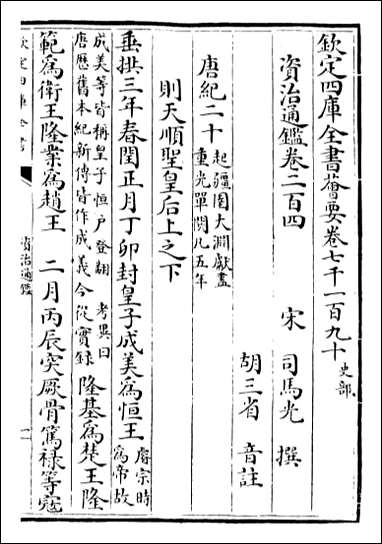 欽定四庫全書薈要卷七千一百九十 史部
資治通鑑卷二百四
宋 司馬光 撰
胡三省 音註
唐紀二十 起彊圉大淵獻盡重光單閼凡五年
則天順聖皇后上之下
垂拱三年春閏正月丁卯封皇子成美為恒王 睿宗時為帝故
成美等皆稱皇子恒户登翻 考異曰唐歷舊本紀新傳皆作成義今從實録 隆基為楚王隆
範為衛王隆業為趙王 二月丙辰突厥骨篤禄等寇
欽定四庫全書
資治通鑑